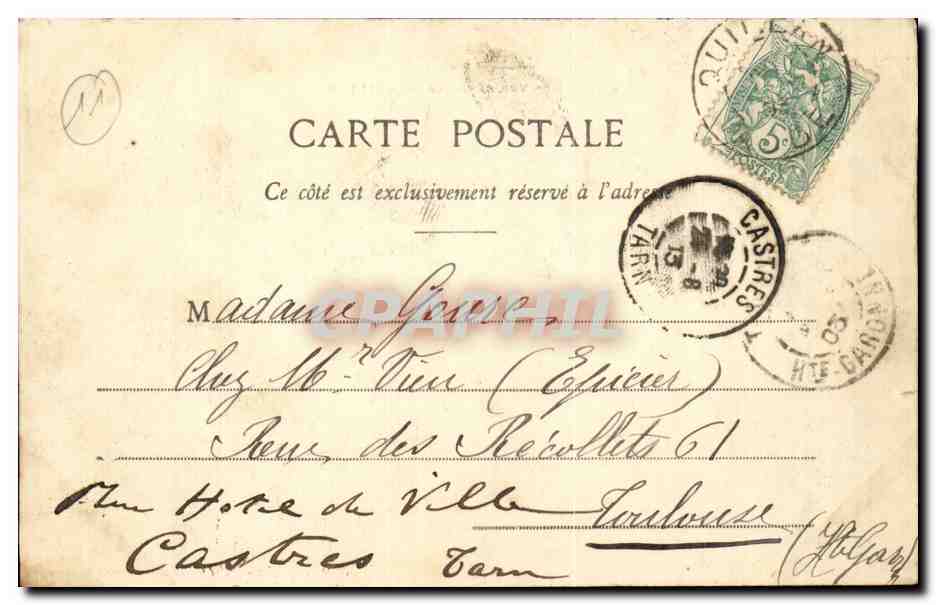 11
QUILLAN
5c
POSTES
CARTE POSTALE
Ce côté est exclusivement réservé à l'adresse
CASTRES
13 -8
TARN
05
HTE-GARONNE
CPARPHIL
Madame Gourc
Chez Mr. Vieu (Epicier)
Rue des Récollets 61
Rue Hotel de Ville Toulouse
Castres Tarn (Hte Gar